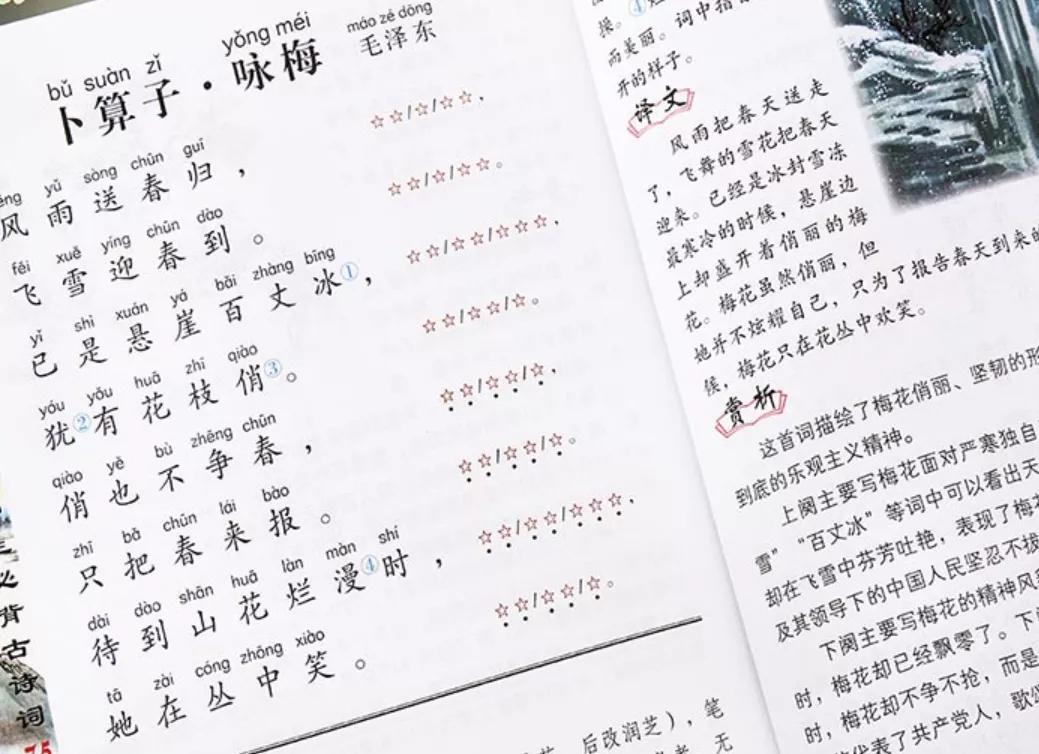 bǔ suàn zǐ yǒng méi
卜算子·咏梅
máo zé dōng
毛泽东
yǔ sòng chūn guī
风雨送春归，
☆☆/☆/☆☆，
fēi xuě yíng chūn dào
飞雪迎春到。
☆☆/☆/☆☆。
yǐ shì xuán yá bǎi zhàng bīng
已是悬崖百丈冰①，
☆☆/☆☆/☆☆☆，
yóu yǒu huā zhī qiào
犹②有花枝俏③。
☆☆/☆☆/☆。
qiào yě bù zhēng chūn
俏也不争春，
☆☆/☆☆/☆，
zhǐ bǎ chūn lái bào
只把春来报。
☆☆/☆☆/☆。
dài dào shān huā làn màn shí
待到山花烂漫④时，
☆☆/☆☆/☆☆☆，
tā zài cóng zhōng xiào
她在丛中笑。
☆☆/☆☆/☆。
后改润芝），笔
无
必背古诗词
75
操。④
而美丽。词中指
开的样子。
译文
风雨把春天送走
了，飞舞的雪花把春天
迎来。已经是冰封雪冻
最寒冷的时候，悬崖边
上却盛开着俏丽的梅
花。梅花虽然俏丽，但
她并不炫耀自己，只为了报告春天到来的
候，梅花只在花丛中欢笑。
赏析
这首词描绘了梅花俏丽、坚韧的形
到底的乐观主义精神。
上阕主要写梅花面对严寒独自
雪”“百丈冰”等词中可以看出天
却在飞雪中芬芳吐艳，表现了梅花
及其领导下的中国人民坚忍不拔
下阕主要写梅花的精神风
时，梅花却已经飘零了。下阕
时，梅花却不争不抢，而是
代表了共产党人，歌颂